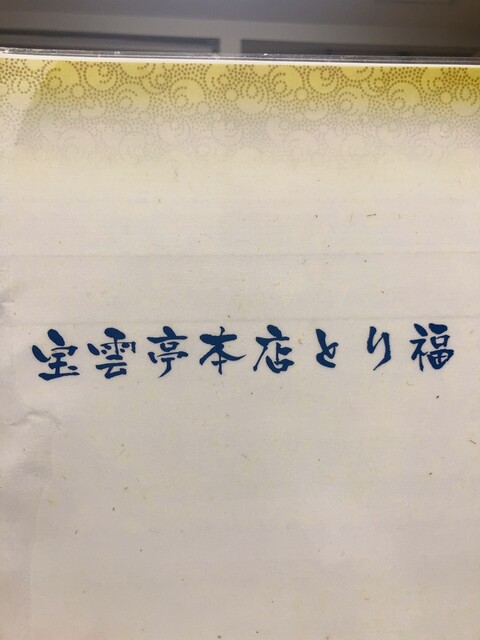 宝雲亭本店とり福